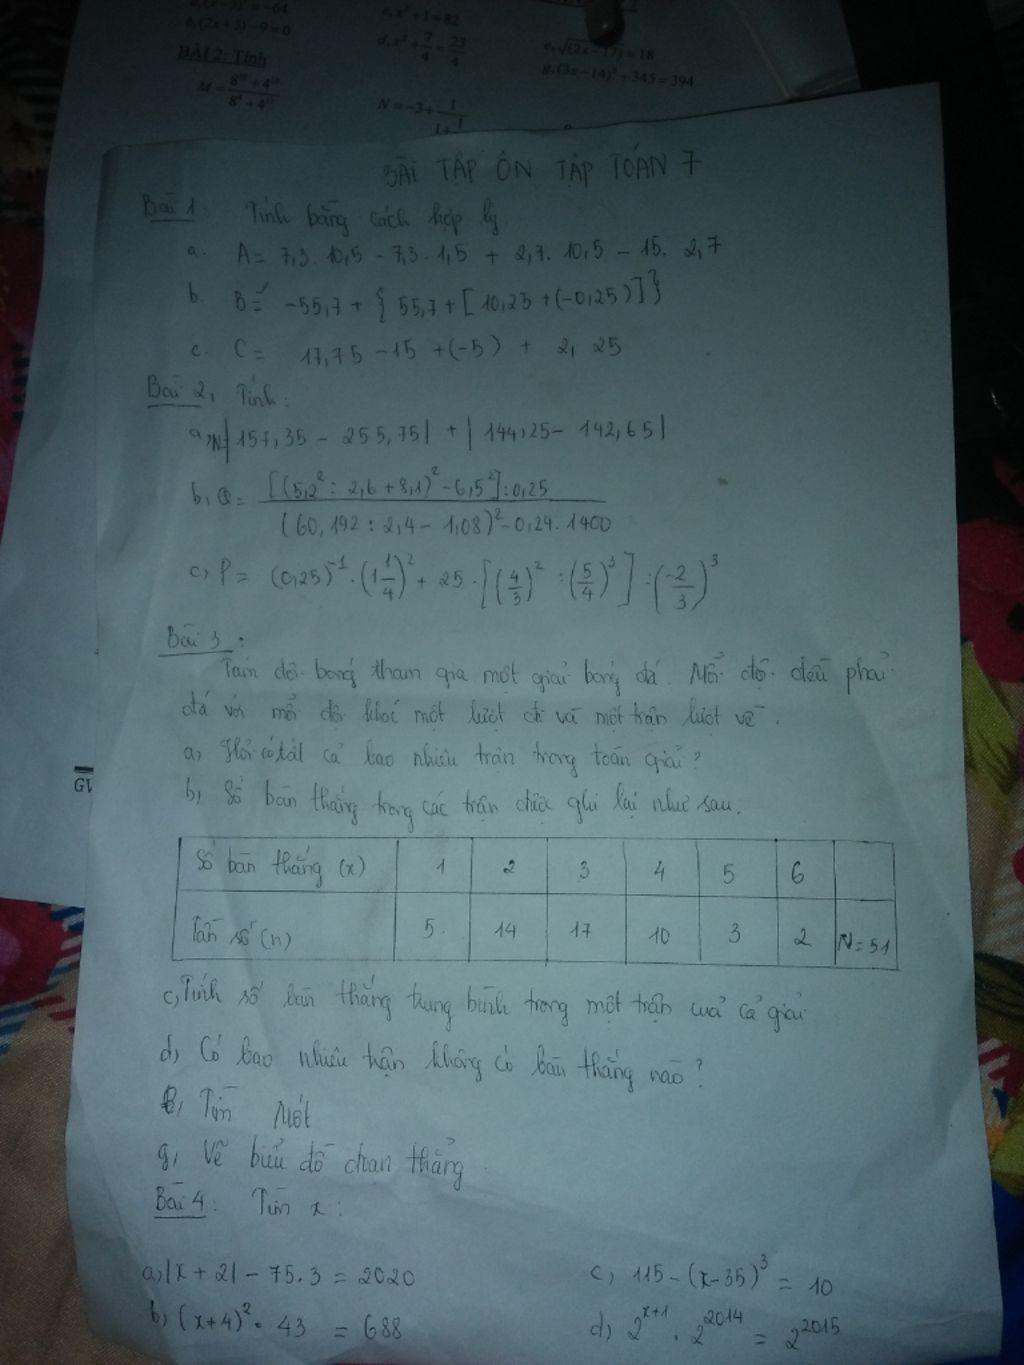 b,(2x+3)-9=0
c,x²+1=82
d,x²+7/4=23/4
e,√(2x-17)=18
g,(3x-14)²+345=394
BÀI 2: Tính
N=-3+
BÀI TẬP ÔN TẬP TOÁN 7
Bài 1. Tính bằng cách hợp lý
a. A= 7,3. 10,5 - 7,3. 1,5 + 2,7. 10,5 - 15. 2,7
b. B= -55,7 + { 55,7 + [ 10,25 + (-0,25)] }
c. C= 17,75 - 15 + (-5) + 2, 25
Bài 2, Tính:
a, N |157,35 - 255,75| + | 144,25 - 142,65|
b, Q = [(5,2² : 2,6 + 8,1)² - 6,5²] : 0,25 / (60,192 : 2,4 - 1,08)² - 0,24. 1400
c, P = (0,25)⁻¹ . (1 1/4)² + 25 . [(4/3)² : (5/4)³] : (-2/3)³
Bài 3:
Tám đội bóng tham gia một giải bóng đá. Mỗi đội đều phải
đá với mỗi đội khác một lượt đi và một trận lượt về.
a, Hỏi có tất cả bao nhiêu trận trong toàn giải?
b, Số bàn thắng trong các trận được ghi lại như sau.
Số bàn thắng (x) 1 2 3 4 5 6
Tần số (n) 5 14 17 10 3 2 N = 51
c, Tính số bàn thắng trung bình trong một trận của cả giải
d, Có bao nhiêu trận không có bàn thắng nào?
e, Tìm Mốt
g, Vẽ biểu đồ đoạn thẳng
Bài 4: Tìm x:
a, |x + 2| - 75. 3 = 2020
c, 115 - (x-35)³ = 10
b, (x+4)² . 43 = 688
d, 2ˣ⁺¹ . 2²⁰¹⁴ = 2²⁰¹⁵
GV